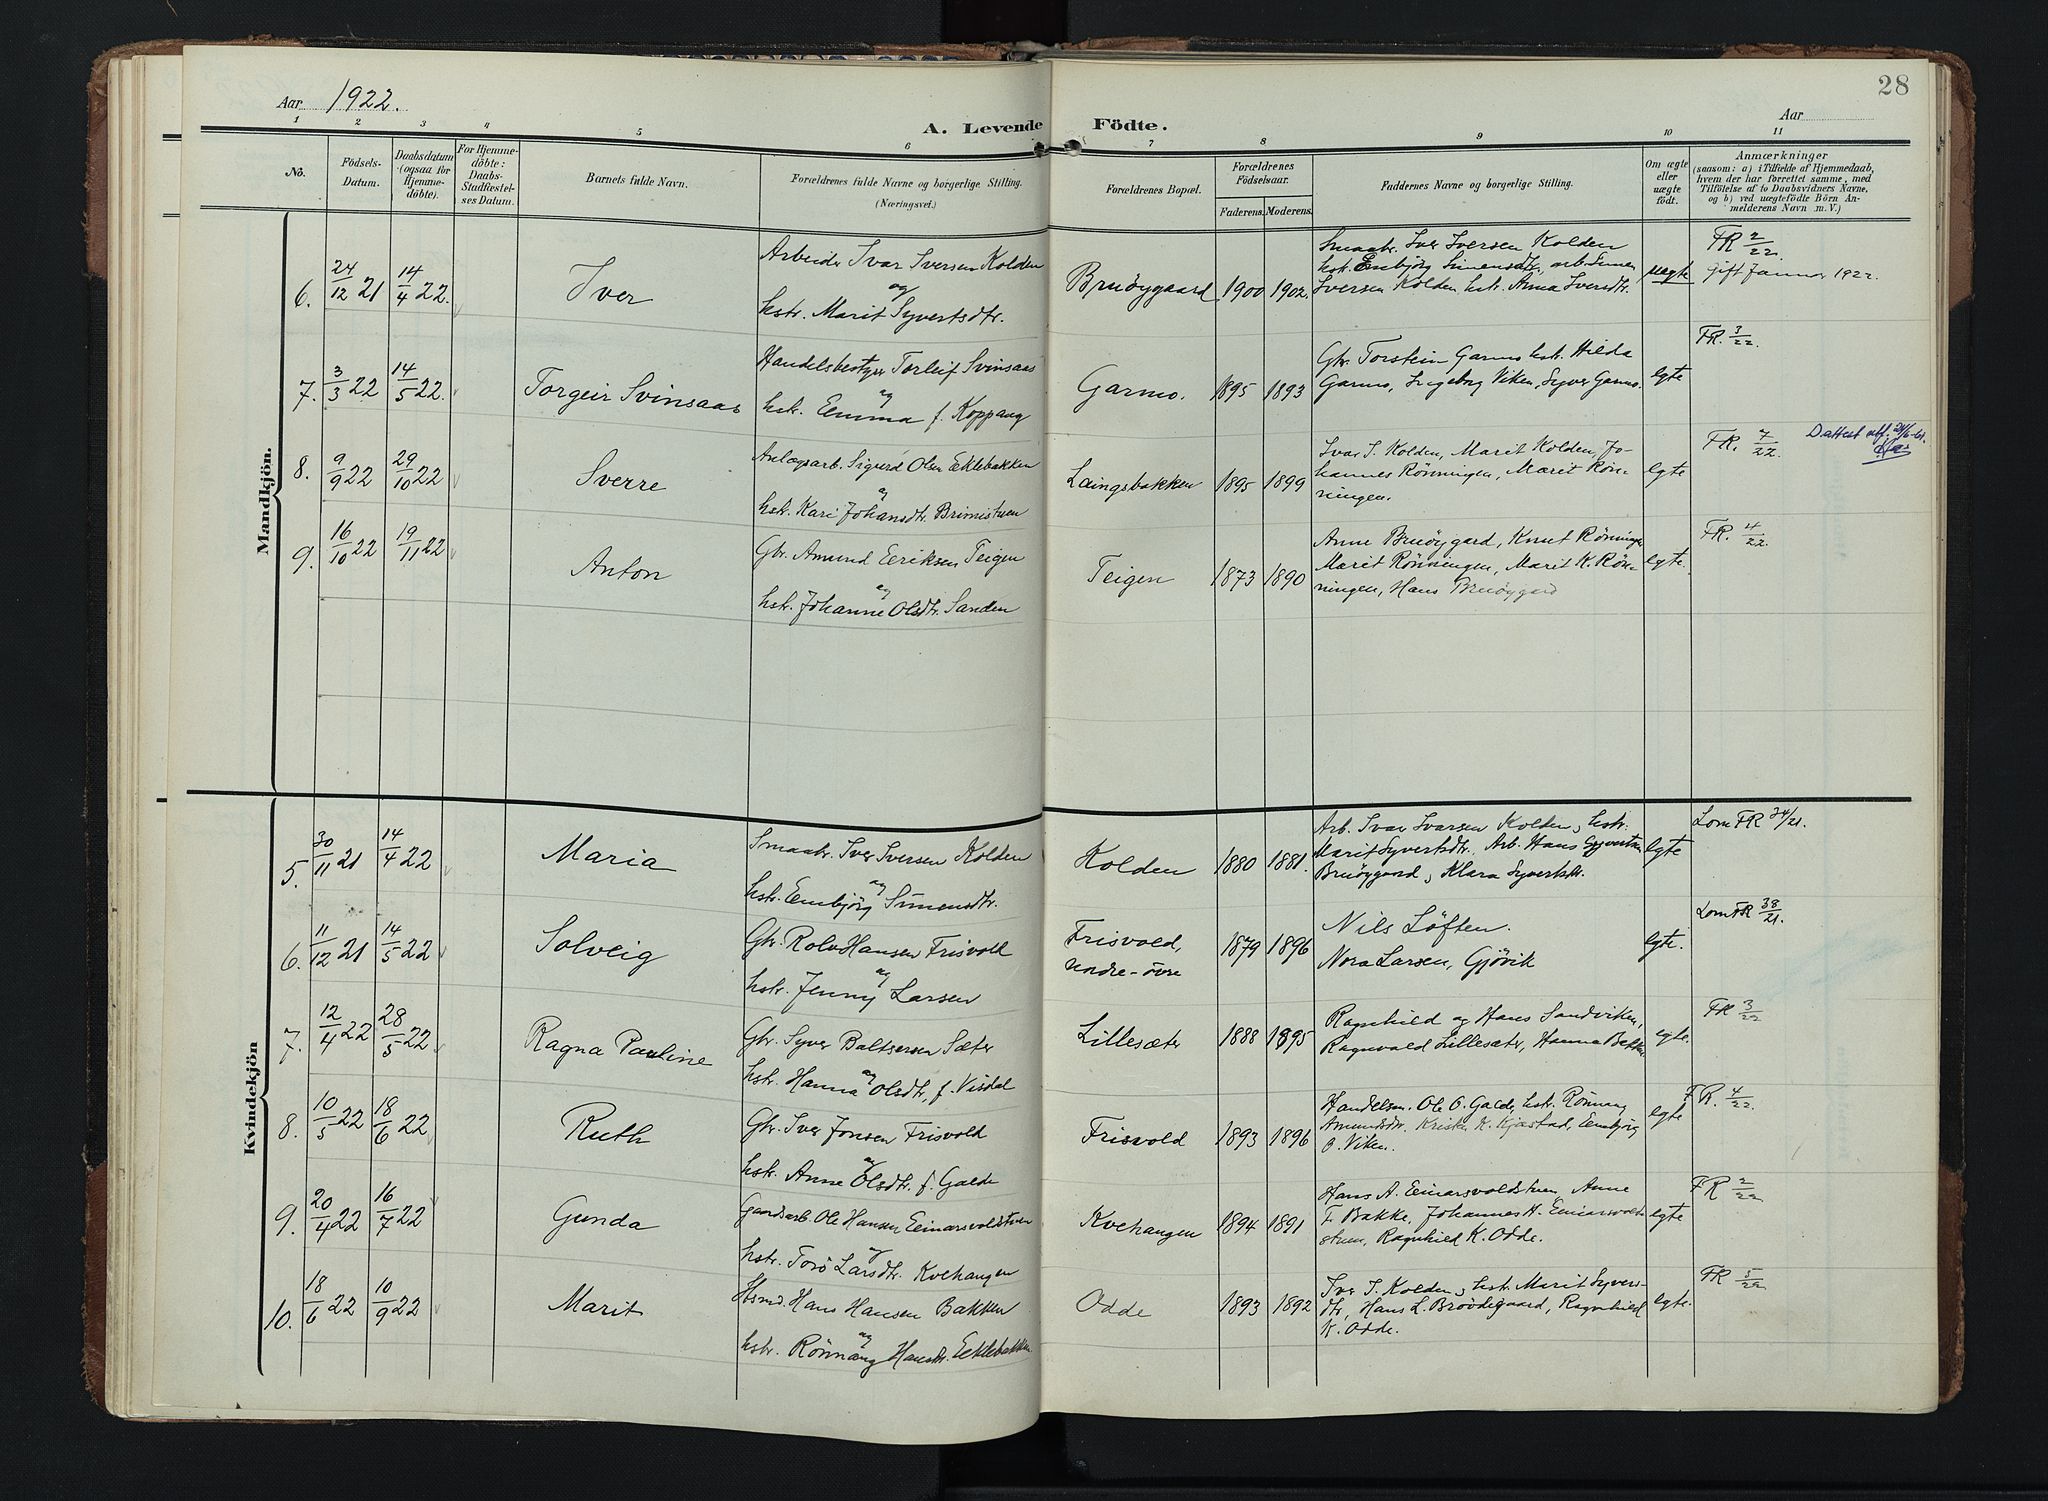 Aar 1922.
28
A. Levende Födte.
Aar
1 2 3 4 5 6 7 8 9 10 11
No.
Födsels-Datum.
Daabsdatum (ogsaa for Hjemmedöbte).
For Hjemmedöbte: Daabs-Stadfæstelses Datum.
Barnets fulde Navn.
Forældrenes fulde Navne og borgerlige Stilling. (Næringsvei.)
Forældrenes Bopæl.
Forældrenes Födselsaar.
Faderens. Moderens.
Faddernes Navne og borgerlige Stilling.
Om ægte eller uægte födt.
Anmærkninger
(saasom: a) i Tilfælde af Hjemmedaab,
hvem der har forrettet samme, med
Tilföielse af to Daabsvidners Navne,
og b) ved uægtefödte Börn Anmelderens Navn m. V.)
Mandkjön.
6. 24/12 21 14/4 22. Iver
Arbeider Ivar Iversen Kolden
og
hstr. Marit Syvertsdtr.
Bruöygaard 1900 1902.
Smaabr. Iver Iversen Kolden
hst. Embjörg Simensdtr, arb. Simen
Iversen Kolden, hst. Anna Iversdtr.
uegte
FR 2/22
Gift Januar 1922.
7. 3/3 22 14/5 22. Torgeir Svinsaas
Handelsbestyer Torleif Svinsaas
og
hstr. Emma f. Koppang
Garmo. 1895 1893
Gbr. Torstein Garmo hst. Hilda
Garmo, Ingeborg Viken, Syver Garmo.
egte
FR. 3/22.
8. 9/9 22 29/10 22 Sverre
Anlægsarb. Sigurd Olsen Eklebakken
og
hst. Kari Johansdtr Brimistuen
Laingsbakken 1895 1899
Ivar I. Kolden, Marit Kolden, Jo-
hannes Rönningen, Marit Rön-
ningen.
egte
FR. 7/22.
Dattest utf.
9. 16/10 22 19/11 22 Anton
Gbr. Amund Eriksen Teigen
og
hst. Johanne Olsdtr. Sanden
Teigen 1873 1890
Anne Bruöygard, Knut Rönningen
Marit Rönningen, Marit K. Rön-
ningen, Hans Bruöygard
egte.
FR. 4/22.
Kvindekjön
5. 30/11 21 14/4 22 Maria
Smaabr. Iver Iversen Kolden
og
hst. Embjörg Simensdtr.
Kolden 1880 1881.
Arb. Ivar Ivarsen Kolden, hst.
Marit Syvertsdtr. Arb. Hans Syvertsen
Bruöygaard, Klara Syvertsdtr.
egte
Lom FR 34/21.
6. 11/12 21 14/5 22 Solveig
Gbr. Rolv Hansen Frisvold
og
hst. Jenny Larsen
Frisvold,
undre-övre 1879 1896
Nils Löften.
Nora Larsen, Gjövik
egte.
Lom FR 38/21.
7. 12/4 22 28/5 22 Ragna Pauline
Gbr. Syver Baltsersen Sæter
og
hst. Hanna Olsdtr, f. Visdal
Lillesæter 1888 1895
Ragnhild og Hans Sandviken,
Ragnvald Lillesæter, Hanna Bakken
egte.
FR 3/22
8. 10/5 22 18/6 22 Ruth
Gbr. Iver Jonsen Frisvold
og
hst. Anne Olsdtr. f. Galde
Frisvold 1893 1896
Handelsm. Ole O. Galde, hst. Rönnaug
Amundsdtr. K. Kjæstad, Embjörg
O. Viken.
egte
FR. 4/22.
9. 20/4 22 16/7 22 Gunda
Gaardsarb. Ole Hansen Einarsvoldstuen
og
hst. Torö Larsdtr. Kvehaugen
Kvehaugen 1894 1891
Hans A. Einarsvoldstuen, Anne
F. Bakke, Johannes H. Einarsvold-
stuen, Ragnhild K. Odde.
egte
FR 2/22
10. 18/6 22 10/9 22 Marit
Hsmd. Hans Hansen Bakken
og
hst. Rönnaug Hansdtr. Eklebakken
Odde 1893 1892
Iver I. Kolden, hst. Marit Syvers-
dtr, Hans L. Brövdegaard, Ragnhild
K. Odde.
egte.
FR 5/22